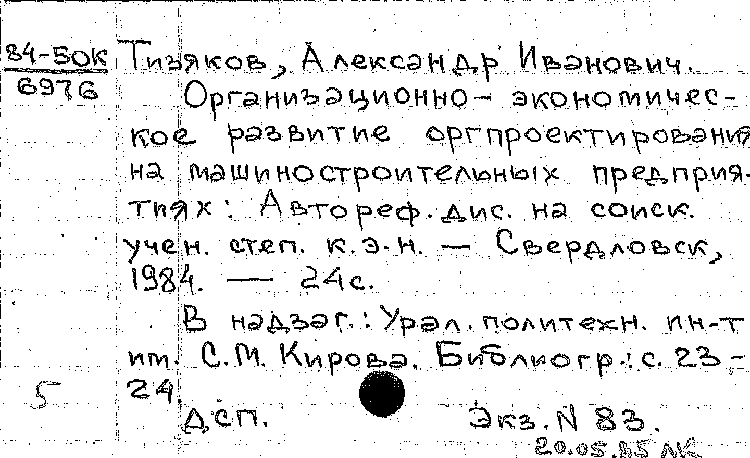 84-5ОК Тизяков, Александр Иванович.
6976
Организационно-экономичес-
кое развитие оргпроектирования
на машиностроительных предприя-
тиях: Автореф. дис. на соиск.
учен. степ. к.э.н. — Свердловск,
1984. — 24с.
В надзаг.: Урал. политехн. ин-т
им. С.М. Кирова. Библиогр.: с. 23-
5 24.
ДСП. Экз. N 83.
20.05.85 ЛК